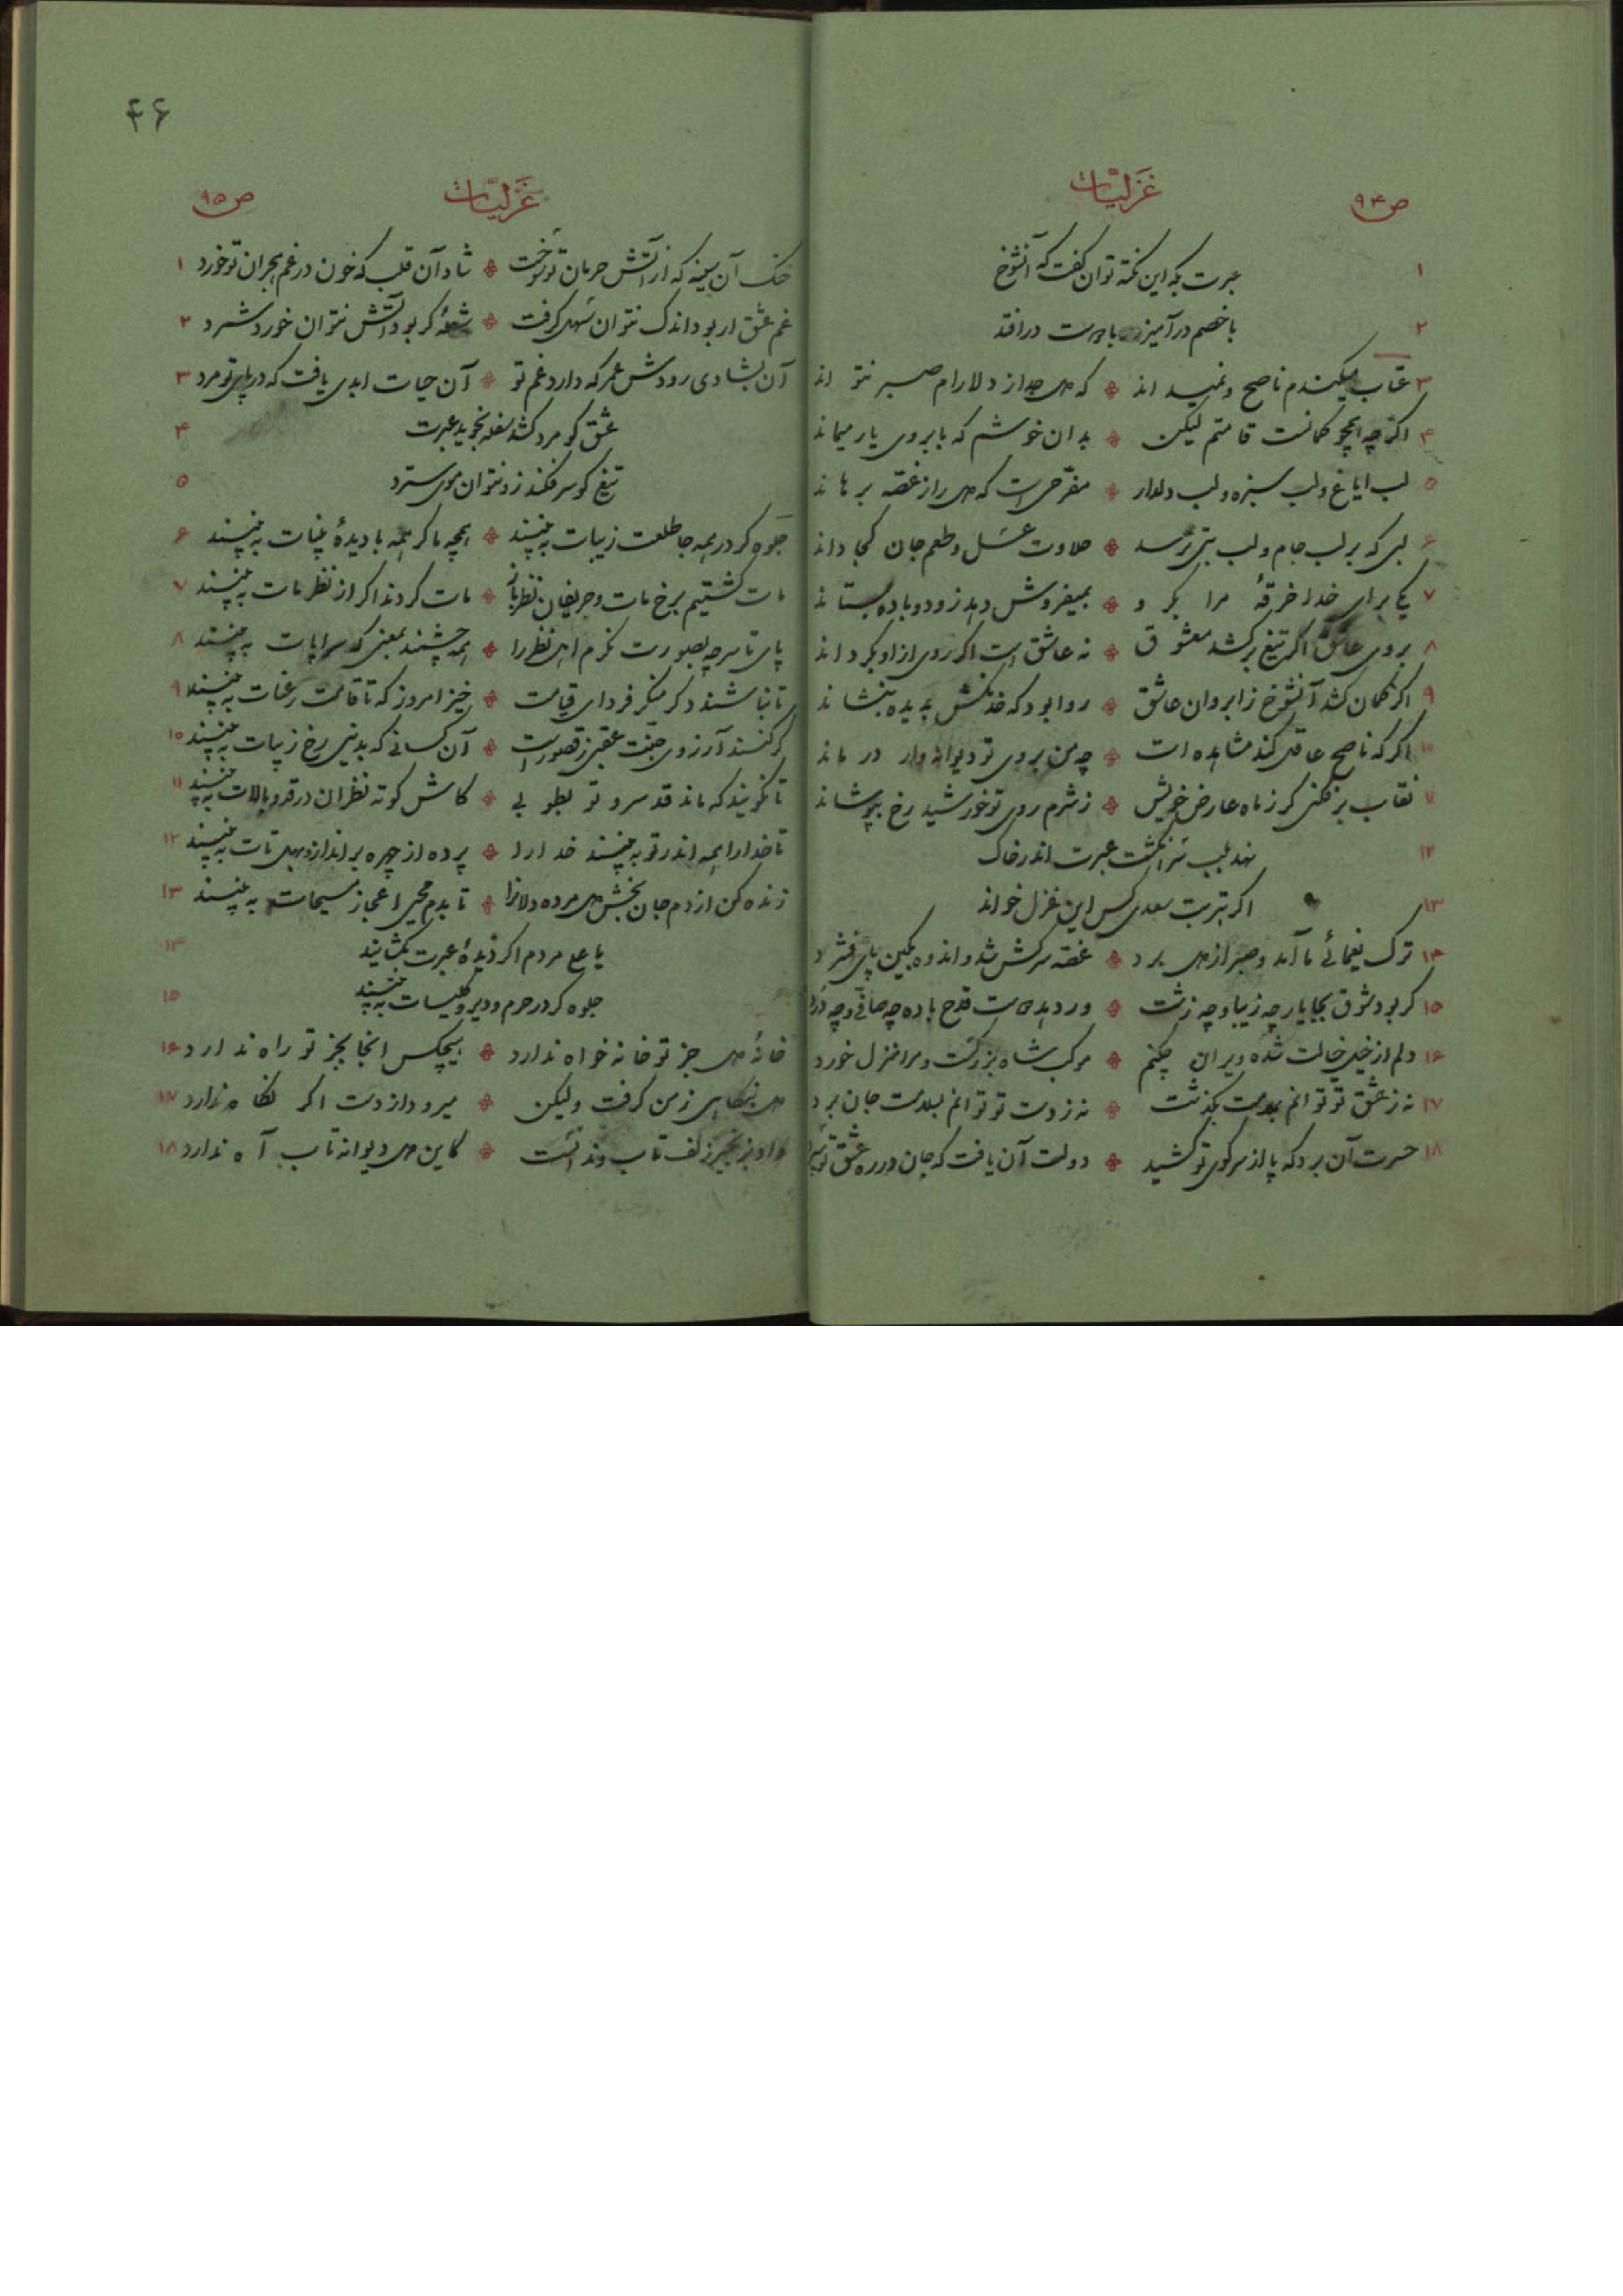 ص ۹۴
غزلیّات
۱ عبرت بکه این نکته توان گفت که آنشوخ
۲ با خصم درآمیزد و با دوست درافتد
۳ عتاب میکندم ناصح و نمیداند که دل جدا ز دلارام صبر نتواند
۴ اگرچه همچو کمانست قامتم لیکن بدان خوشم که بابروی یار میماند
۵ لب ایاغ و لب سبزه و لب دلدار مفرحی است که دل را ز غصه برهاند
۶ لبی که بر لب جام و لب بتی نرسد حلاوت عسل و طعم جان کجا داند
۷ یکی برای خدا خرقهٔ مرا بگرو بمیفروش دهد زود و باده بستاند
۸ بروی عاشق اگر تیغ برکشد معشوق نه عاشق است اگر روی از او بگرداند
۹ اگر کمان کشد آنشوخ ز ابروان عاشق روا بود که خدنگش بدیده بنشاند
۱۰ اگر که ناصح عاقل کند مشاهده ات چه من بروی تو دیوانه وار درماند
۱۱ نقاب برفکنی گر ز ماه عارض خویش ز شرم روی تو خورشید رخ بپوشاند
۱۲ نهد بلب سر انگشت عبرت اندر خاک
۱۳ اگر بتربت سعدی کس این غزل خواند
۱۴ ترک یغمائی ما آمد و صبر از دل برد غصه سرکش شد و اندوه بکین پای فشرد
۱۵ گر بود شوق بجا یار چه زیبا و چه زشت ور دهد دست قدح باده چه صافی و چه درد
۱۶ دلم از خیل خیالت شده ویران چکنم موکب شاه بزرگست و مرا منزل خورد
۱۷ نه ز عشق تو توانم بسلامت بگذشت نه ز دست تو توانم بسلامت جان برد
۱۸ حسرت آن برد که پا از سر کوی تو کشید دولت آن یافت که جان در ره عشق تو سپرد
۴۶
ص ۹۵
غزلیّات
خنک آن سینه که از آتش حرمان تو سوخت شاد آن قلب که خون در غم هجران تو خورد ۱
غم عشق ار بود اندک نتوان سهل گرفت شعله گر بود آتش نتوان خورد شمرد ۲
آن بشادی رودش عمر که دارد غم تو آن حیات ابدی یافت که در پای تو مرد ۳
عشق کو مرد کشد سفله نجوید عبرت ۴
تیغ کو سر فکند زو نتوان موی سترد ۵
جلوه گر در همه جا طلعت زیبات به بینند همچه ما گر همه با دیدهٔ بینات به بینند ۶
مات گشتیم برخ مات و حریفان نظرباز مات گردند اگر از نظر مات به بینند ۷
پای تا سر چه بصورت نگرم اهل نظر را همه چشمند بمعنی که سراپات به بینند ۸
تا نباشند دگر منکر فردای قیامت خیز امروز که تا قامت رعنات به بینند ۹
گر کنند آرزوی جنت عقبی ز قصور است آن کسانی که بدنیی رخ زیبات به بینند ۱۰
تا نگویند که ماند قد سرو تو بطوبی کاش کوته نظران در قد و بالات به بینند ۱۱
تا خدا را همه اندر تو به بینند خدا را پرده از چهره برانداز و بهل تات به بینند ۱۲
زنده کن از دم جان بخش دل مرده دلانرا تا بدم محیی اعجاز مسیحات به بینند ۱۳
یا علی مردم اگر دیدهٔ عبرت بگشایند ۱۴
جلوه گر در حرم و دیر و کلیسات به بینند ۱۵
خانهٔ دل جز تو خانه خواه ندارد هیچکس آنجا بجز تو راه ندارد ۱۶
دل بنگاهی ز من گرفت ولیکن میرود از دست اگر نگاه ندارد ۱۷
داد بزنجیر زلف تاب و ندانست کاین دل دیوانه تاب آه ندارد ۱۸